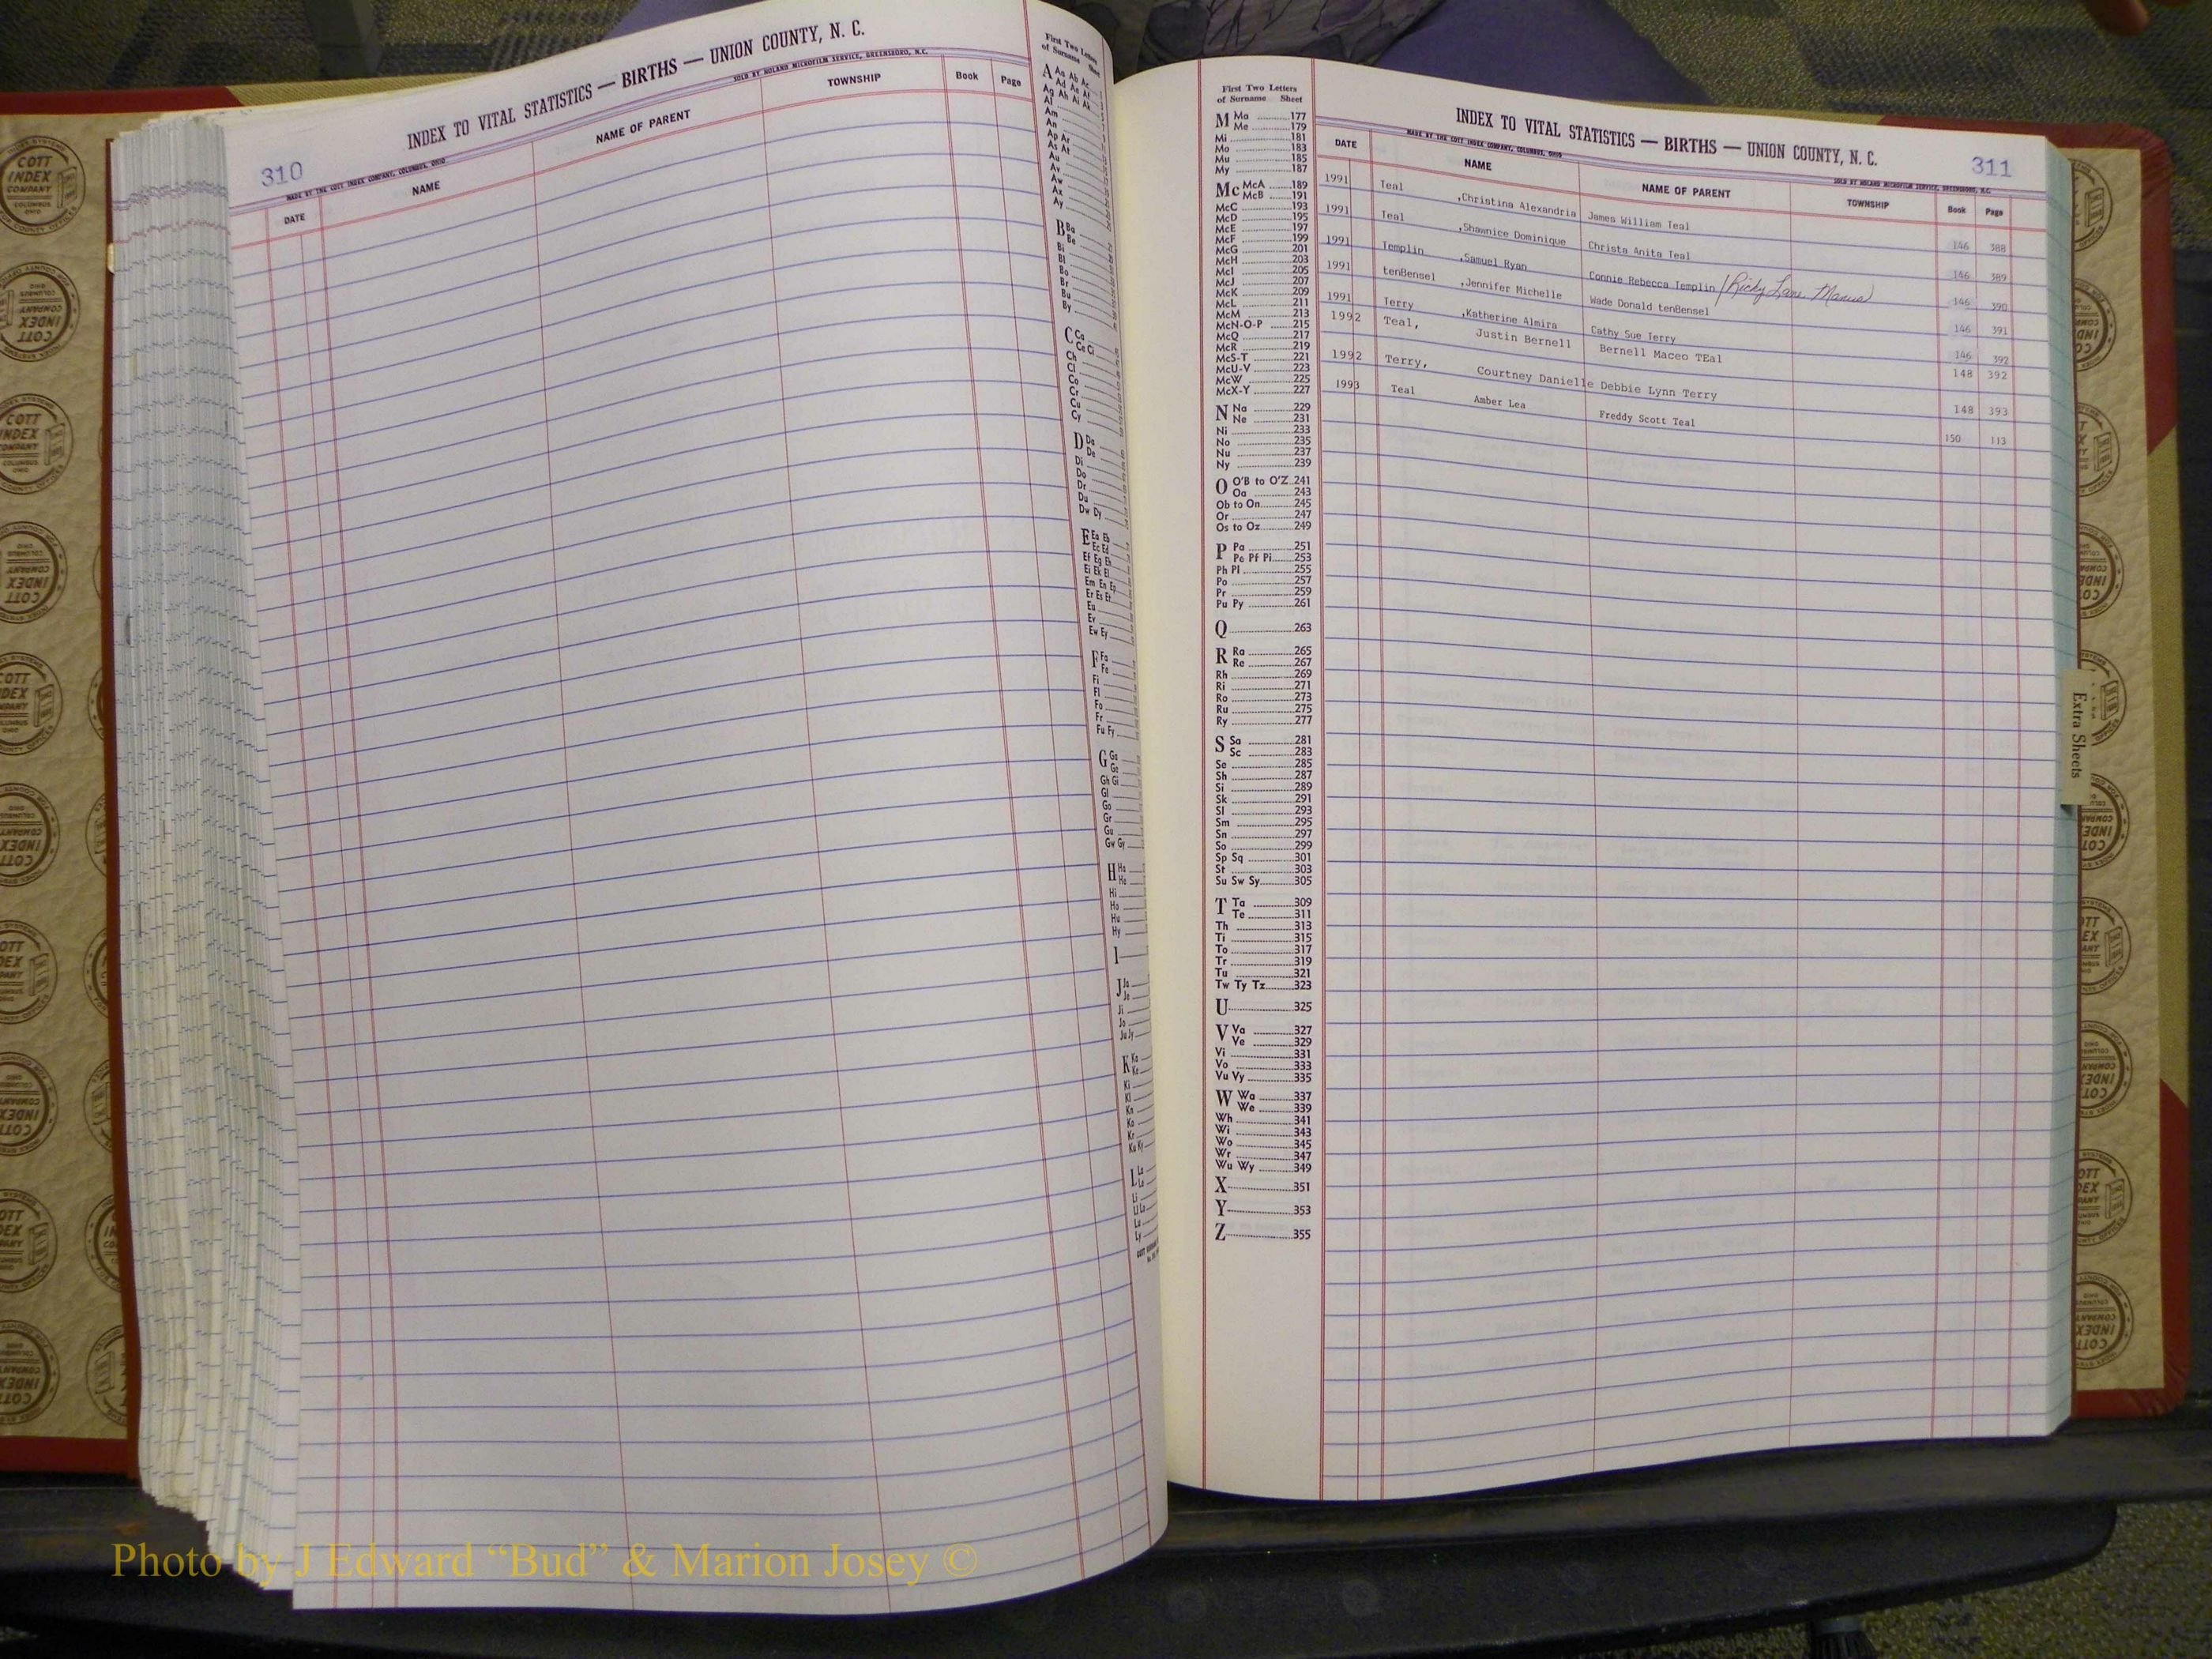 310
INDEX TO VITAL STATISTICS — BIRTHS — UNION COUNTY, N. C.
MADE BY THE COTT INDEX COMPANY, COLUMBUS, OHIO
SOLD BY NOLAND MICROFILM SERVICE, GREENSBORO, N.C.
DATE NAME NAME OF PARENT TOWNSHIP Book Page
First Two Letters
of Surname Sheet
A Aa Ab Ac
Ad Ae Af
Ag Ah Ai Ak
Al
Am
An
Ap Ar
As At
Au
Av
Aw
Ax
Ay
B Ba
Be
Bi
Bl
Bo
Br
Bu
By
C Ca
Ce Ci
Ch
Cl
Co
Cr
Cu
Cy
D Da
De
Di
Do
Dr
Du
Dw Dy
E Ea Eb
Ec Ed
Ef Eg Eh
Ei Ek El
Em En Ep
Er Es Et
Eu
Ev
Ew Ey
F Fa
Fe
Fi
Fl
Fo
Fr
Fu Fy
G Ga
Ge
Gh Gi
Gl
Go
Gr
Gu
Gw Gy
H Ha
He
Hi
Ho
Hu
Hy
I
J Ja
Je
Ji
Jo
Ju Jy
K Ka
Ke
Ki
Kl
Kn
Ko
Kr
Ku Ky
L La
Le
Li
Ll Lo
Lu
Ly
First Two Letters
of Surname Sheet
M Ma 177
Me 179
Mi 181
Mo 183
Mu 185
My 187
Mc McA 189
McB 191
McC 193
McD 195
McE 197
McF 199
McG 201
McH 203
McI 205
McJ 207
McK 209
McL 211
McM 213
McN-O-P 215
McQ 217
McR 219
McS-T 221
McU-V 223
McW 225
McX-Y 227
N Na 229
Ne 231
Ni 233
No 235
Nu 237
Ny 239
O O'B to O'Z 241
Oa 243
Ob to On 245
Or 247
Os to Oz 249
P Pa 251
Pe Pf Pi 253
Ph Pl 255
Po 257
Pr 259
Pu Py 261
Q 263
R Ra 265
Re 267
Rh 269
Ri 271
Ro 273
Ru 275
Ry 277
S Sa 281
Sc 283
Se 285
Sh 287
Si 289
Sk 291
Sl 293
Sm 295
Sn 297
So 299
Sp Sq 301
St 303
Su Sw Sy 305
T Ta 309
Te 311
Th 313
Ti 315
To 317
Tr 319
Tu 321
Tw Ty Tz 323
U 325
V Va 327
Ve 329
Vi 331
Vo 333
Vu Vy 335
W Wa 337
We 339
Wh 341
Wi 343
Wo 345
Wr 347
Wu Wy 349
X 351
Y 353
Z 355
INDEX TO VITAL STATISTICS — BIRTHS — UNION COUNTY, N. C.
311
MADE BY THE COTT INDEX COMPANY, COLUMBUS, OHIO
SOLD BY NOLAND MICROFILM SERVICE, GREENSBORO, N.C.
DATE NAME NAME OF PARENT TOWNSHIP Book Page
1991 Teal ,Christina Alexandria James William Teal 146 388
1991 Teal ,Shawnice Dominique Christa Anita Teal 146 389
1991 Templin ,Samuel Ryan Connie Rebecca Templin / Ricky Lane Manus 146 390
1991 tenBensel ,Jennifer Michelle Wade Donald tenBensel 146 391
1991 Terry ,Katherine Almira Cathy Sue Terry 146 392
1992 Teal, Justin Bernell Bernell Maceo TEal 148 392
1992 Terry, Courtney Danielle Debbie Lynn Terry 148 393
1993 Teal Amber Lea Freddy Scott Teal 150 113
Extra Sheets
COTT INDEX COMPANY COLUMBUS OHIO
Photo by J Edward “Bud” & Marion Josey ©